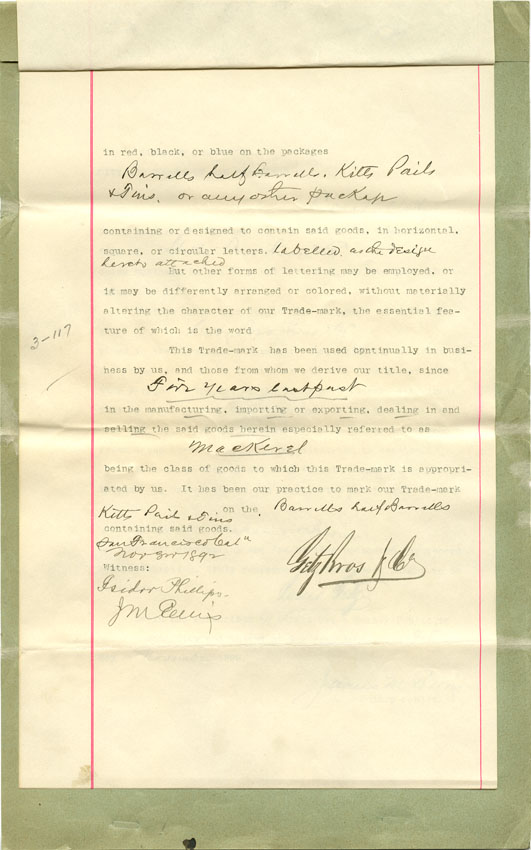 in red, black, or blue on the packages
Barrells half Barrells, Kitts Pails
& Tins. or any other Package
containing or designed to contain said goods, in horizontal,
square, or circular letters, labelled, as the design
hereto attached
But other forms of lettering may be employed, or
it may be differently arranged or colored, without materially
altering the character of our Trade-mark, the essential fea-
ture of which is the word
3-117
This Trade-mark has been used cpntinually in busi-
ness by us, and those from whom we derive our title, since
Five years last past
in the manufacturing, importing or exporting, dealing in and
selling the said goods herein especially referred to as
Mackerel
being the class of goods to which this Trade-mark is appropri-
ated by us. It has been our practice to mark our Trade-mark
on the, Barrells half Barrells
Kitts Pails & Tins
containing said goods.
San Francisco Cal"
Nov 3rd 1892
Witness:
Getz Bros & Co
Isidor Phillips
J M